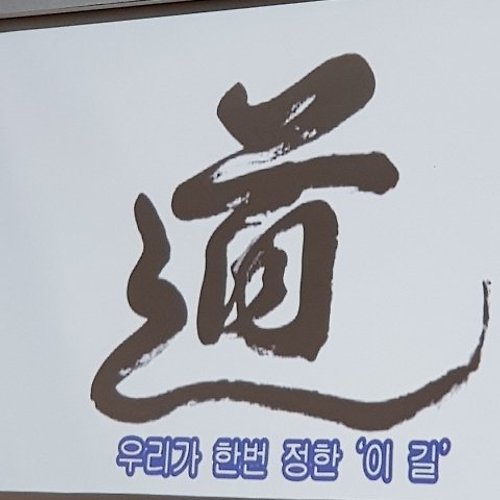 道
우리가 한번 정한 '이 길'